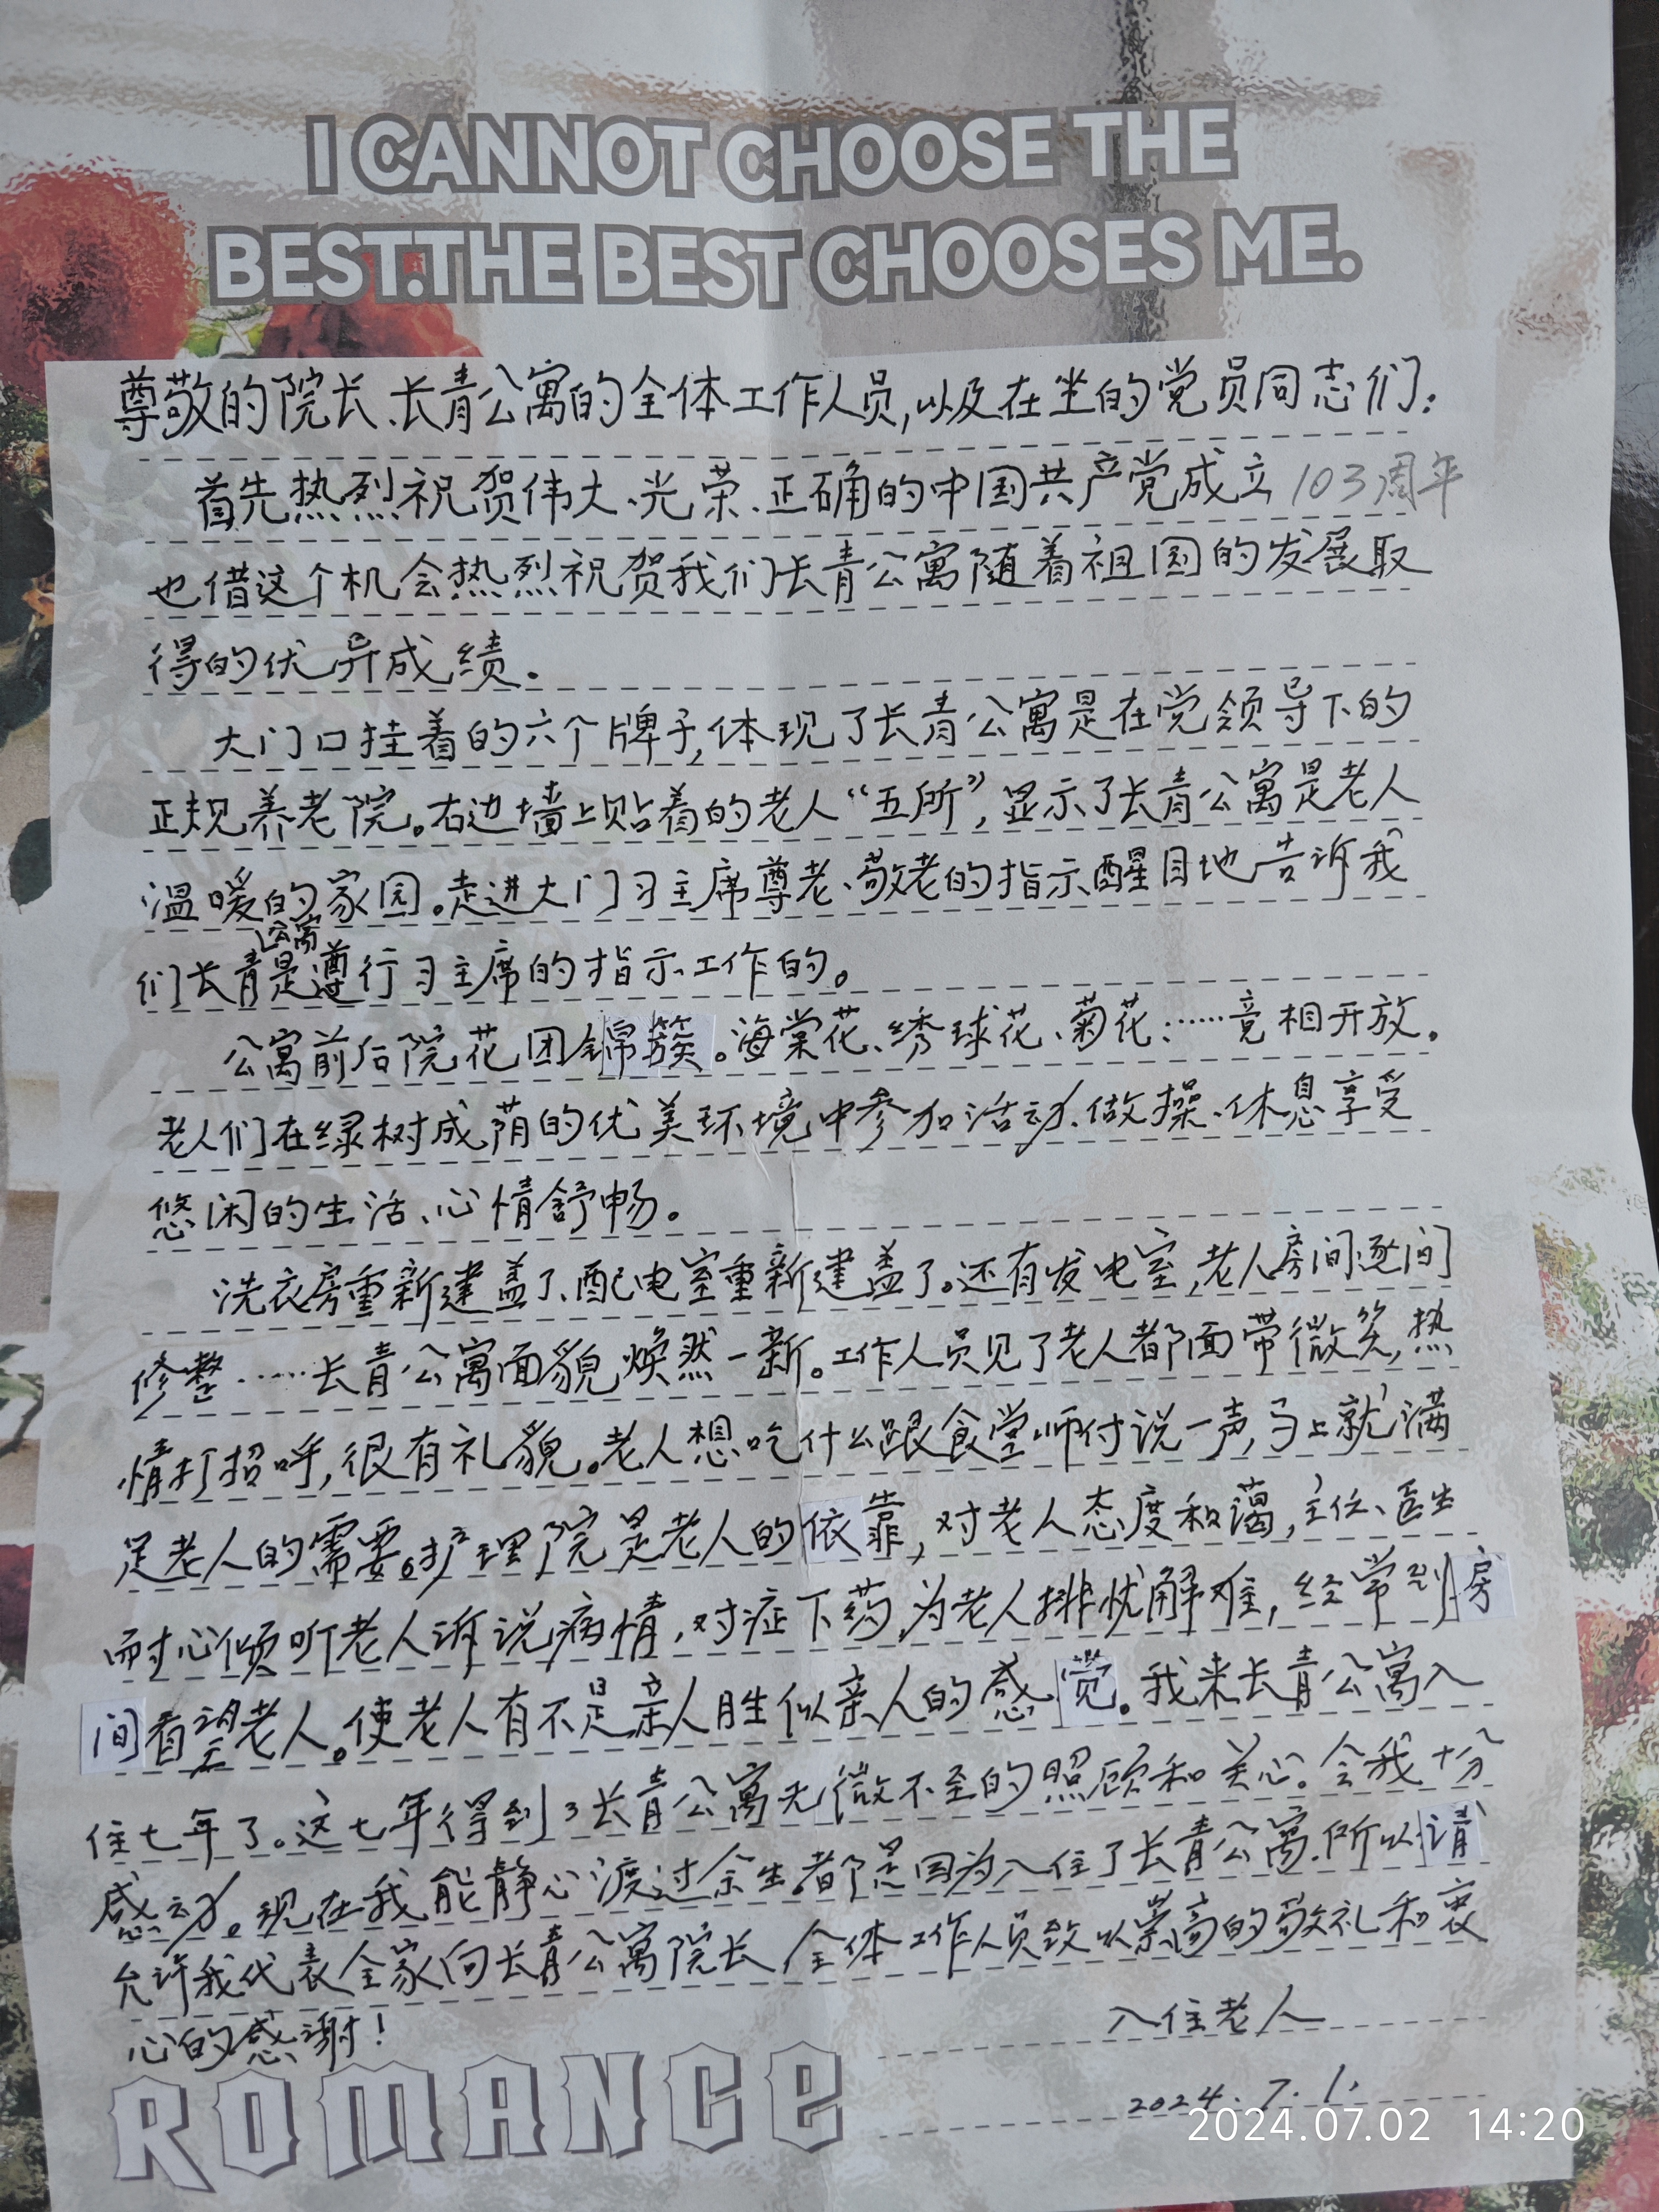 I CANNOT CHOOSE THE
BEST.THE BEST CHOOSES ME.
尊敬的院长、长青公寓的全体工作人员,以及在坐的党员同志们:
首先热烈祝贺伟大、光荣、正确的中国共产党成立103周年
也借这个机会热烈祝贺我们长青公寓随着祖国的发展取
得的优异成绩.
大门口挂着的六个牌子,体现了长青公寓是在党领导下的
正规养老院。右边墙上贴着的老人“五所”,显示了长青公寓是老人
温暖的家园。走进大门习主席尊老、敬老的指示醒目地告诉我
们长青公寓是遵行习主席的指示工作的。
公寓前后院花团锦簇。海棠花、绣球花、菊花:……竞相开放。
老人们在绿树成荫的优美环境中参加活动.做操、休息享受
悠闲的生活、心情舒畅。
洗衣房重新建盖了、配电室重新建盖了。还有发电室,老人房间逐间
修整……长青公寓面貌焕然一新。工作人员见了老人都面带微笑,热
情打招呼,很有礼貌。老人想吃什么跟食堂师付说一声,马上就满
足老人的需要。护理院是老人的依靠,对老人态度和蔼,主任、医生
耐心倾听老人诉说病情,对症下药,为老人排忧解难,经常到房
间看望老人。使老人有不是亲人胜似亲人的感觉。我来长青公寓入
住七年了。这七年得到了长青公寓无微不至的照顾和关心。令我十分
感动。现在我能静心渡过余生都是因为入住了长青公寓.所以请
允许我代表全家向长青公寓院长、全体工作人员致以崇高的敬礼和衷
心的感谢!
入住老人
2024.7.1.
ROMANCE
2024.07.02 14:20